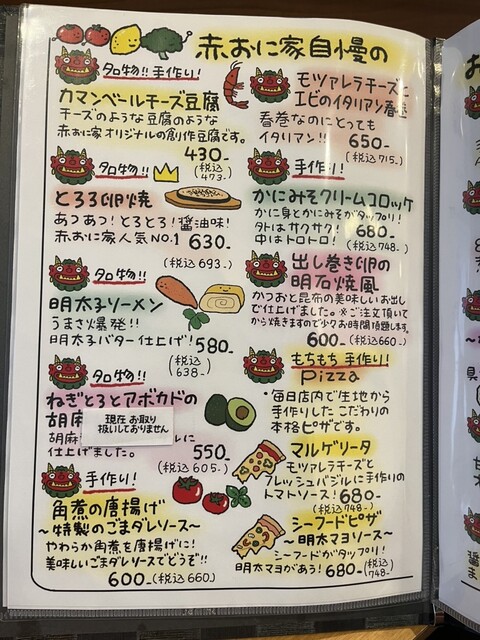 赤おに家自慢の
名物!! 手作り!
カマンベールチーズ豆腐
チーズのような豆腐のような
赤おに家オリジナルの創作豆腐です。
430-
(税込
473-
名物!!
とろろ卵焼
あつあつ!とろとろ!醤油味!
赤おに家人気NO.1 630-
(税込693-)
名物!!
明太子ソーメン
うまさ爆発!!
明太子バター仕上げ! 580-
(税込
638-)
名物!!
ねぎとろとアボカドの
胡麻
現在 お取り
扱いしておりません
胡麻
に
仕上げました。
550-
(税込605-)
手作り!
角煮の唐揚げ
~特製のごまダレソース~
やわらか角煮を唐揚げに!
美味しいごまダレソースでどうぞ!!
600-(税込660-)
モッツァレラチーズと
エビのイタリアン春巻
春巻なのにとっても
イタリアン!! 650-
(税込715-)
手作り!
かにみそクリームコロッケ
かに身とかにみそがタップリ!
外はサクサク! 680-
中はトロトロ! (税込748-)
出し巻き卵の
明石焼風
かつおと昆布の美味しいお出し
で仕上げました。※ご注文頂いて
から焼きますので少々お時間頂戴します。
600-(税込660-)
もちもち 手作り!
Pizza
・毎日店内で生地から
手作りした こだわりの
本格ピザです。
マルゲリータ
モツァレラチーズと
フレッシュバジルに手作りの
トマトソース! 680-
(税込748-)
シーフードピザ
~明太マヨソース~
シーフードがタップリ!
明太マヨがあう! 680-(税込
748-)